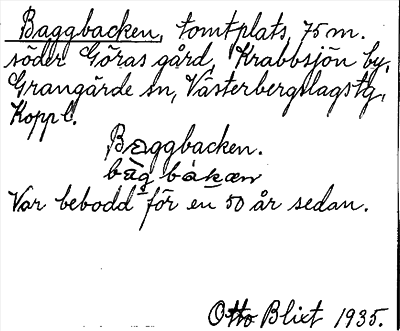 Baggbacken, tomtplats, 75 m.
söder Göras gård, Krabbsjön by,
Grangärde sn, Västerbergslagstg,
Kopp l.
Baggbacken.
Var bebodd för en 50 år sedan.
Otto Blixt 1935.